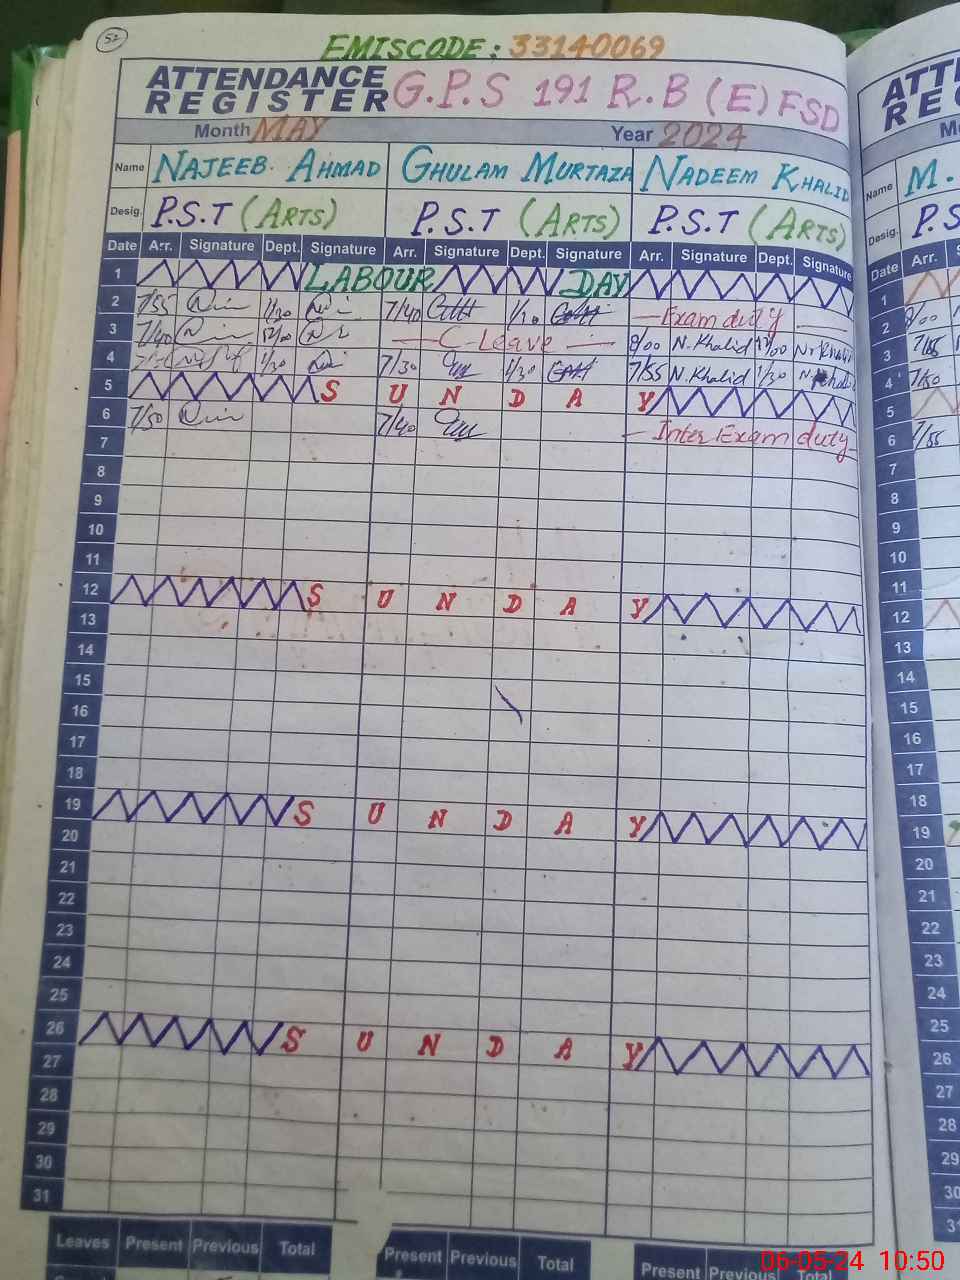 52
EMISCODE: 33140069
ATTENDANCE REGISTER G.P.S 191 R.B (E) FSD
Month MAY Year 2024
Name NAJEEB. AHMAD GHULAM MURTAZA NADEEM KHALID
Desig. P.S.T (ARTS) P.S.T (ARTS) P.S.T (ARTS)
Date Arr. Signature Dept. Signature Arr. Signature Dept. Signature Arr. Signature Dept. Signature
1 LABOUR DAY
2 7/55 1/30 7/40 1/30 Exam duty
3 7/40 12/00 C-Leave 8/00 N.Khalid 12/00 N.Khalid
4 1/30 7/30 1/30 7/55 N.Khalid 1/30
5 S U N D A Y
6 7/50 7/40 Inter Exam duty
7
8
9
10
11
12 S U N D A Y
13
14
15
16
17
18
19 S U N D A Y
20
21
22
23
24
25
26 S U N D A Y
27
28
29
30
31
Leaves Present Previous Total Present Previous Total Present Previous Total
ATTE
RE
Name M.
Desig. P.S
Date Arr.
1
2 8/00
3 7/55
4 7/50
5
6 7/55
7
8
9
10
11
12
13
14
15
16
17
18
19
20
21
22
23
24
25
26
27
28
29
30
06-05-24 10:50